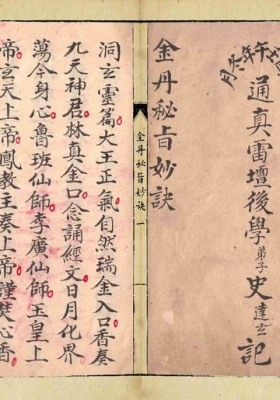 午年
月
通真雷壇後學弟子史達玄記
金丹秘旨妙訣
金丹秘旨妙訣 一
洞玄靈篇大王正氣自然瑞金入口香奏
九天神君林真金口念誦經文日月化界
蕩今身心魯班仙師李廣仙師玉皇上
帝玄天上帝鳳教主奏上帝謹焚心香